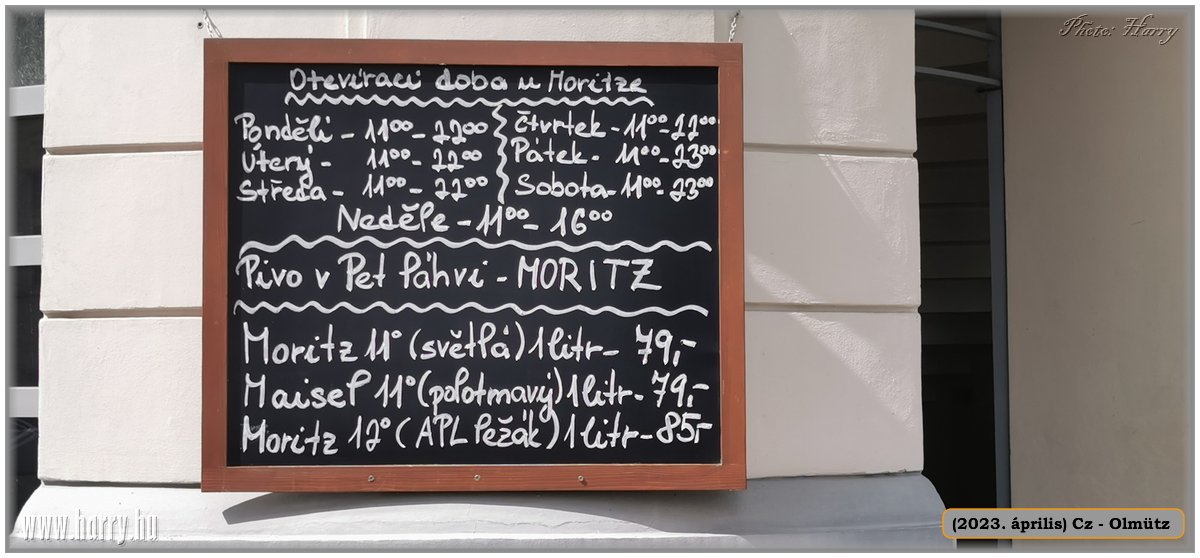 Photo: Harry
Otevírací doba u Moritze
Pondělí - 11⁰⁰ - 22⁰⁰
Úterý - 11⁰⁰ - 22⁰⁰
Středa - 11⁰⁰ - 22⁰⁰
Čtvrtek - 11⁰⁰ - 22⁰⁰
Pátek - 11⁰⁰ - 23⁰⁰
Sobota - 11⁰⁰ - 23⁰⁰
Neděle - 11⁰⁰ - 16⁰⁰
Pivo v Pet láhvi - MORITZ
Moritz 11° (světlá) 1 litr - 79,-
Maisel 11° (polotmavý) 1 litr - 79,-
Moritz 12° (APL ležák) 1 litr - 85,-
www.harry.hu
(2023. április) Cz - Olmütz